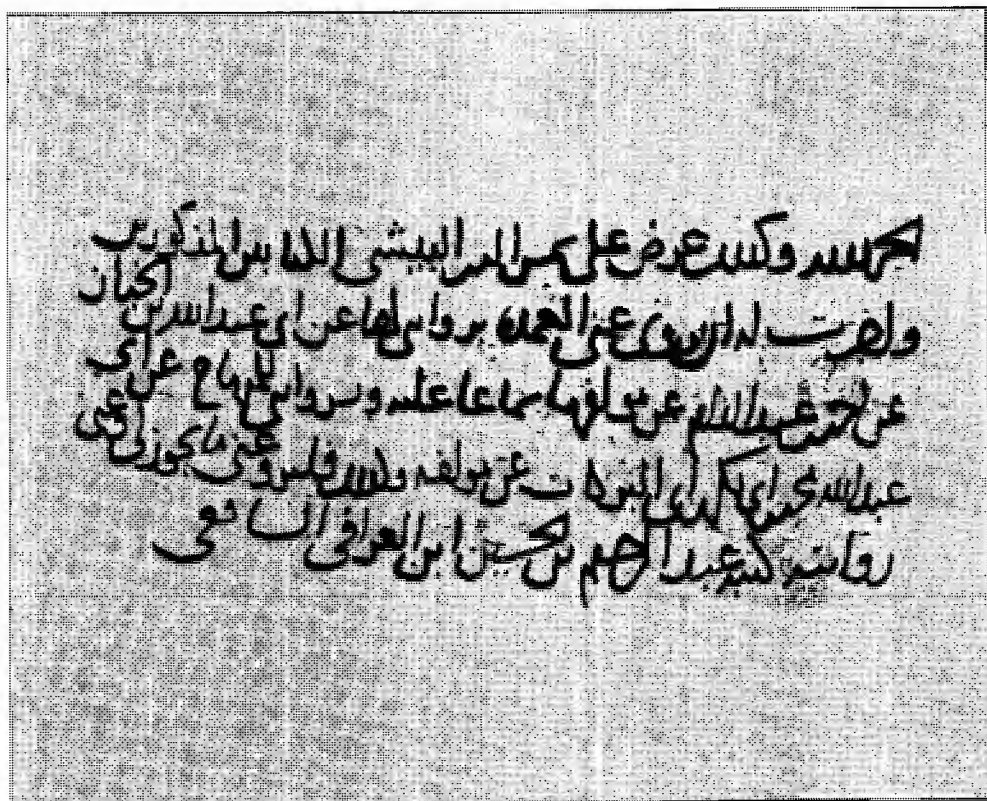 الحمد لله وكذلك عرض علي شمس الدين البيشي الكتابين المذكورين
واجزت له ان يروي عني العمدة بروايتي لها عن ابي عبد الله بن الخباز
عن احمد بن عبد الدائم عن مولفها سماعا عليه وبروايتي للمنهاج عن ابي
عبد الله محمد بن ابي بكر بن ابي البركات عن مولفه وكذلك فليرو عني ما يجوز لي وعني
روايته كتبه عبد الرحيم بن الحسين ابن العراقي الشافعي